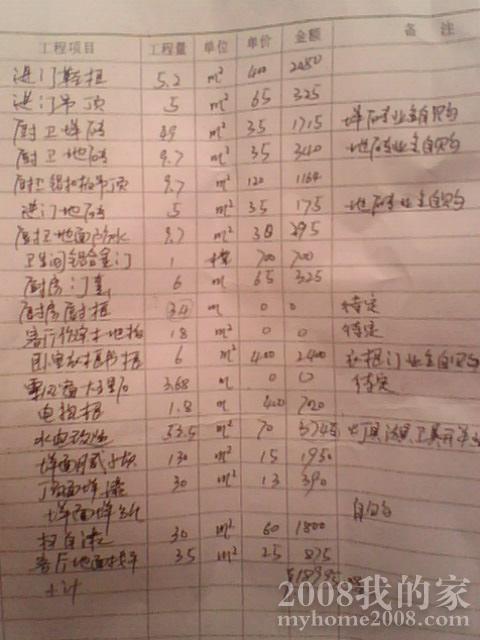 工程项目 工程量 单位 单价 金额 备注
进门鞋柜 5.2 m² 400
进门吊顶 5 m² 65 325
厨卫墙砖 49 m² 35 1715 墙砖业主自购
厨卫地砖 9.7 m² 35 340 地砖业主自购
厨卫铝扣板吊顶 9.7 m² 120 1164
进门地砖 5 m² 35 175 地砖业主自购
厨卫地面防水 9.7 m² 30 295
卫生间铝合金门 1 樘 700 700
厨房门套 6 m 65 325
厨房厨柜 3.4 m 0 0 待定
客厅 地柜 1.8 m² 0 0 待定
6 m² 400 2400 柜门业主自购
3.68 m 0 0 待定
电视柜 1.8 m 400 720
水电改造 53.5 m² 70 3745
墙面 130 m² 15 1950
顶面墙漆 30 m² 13 390
墙面墙 自购
30 m² 60 1800
客厅地面找平 35 m² 25 875
小计
2008我的家
myhome2008.com